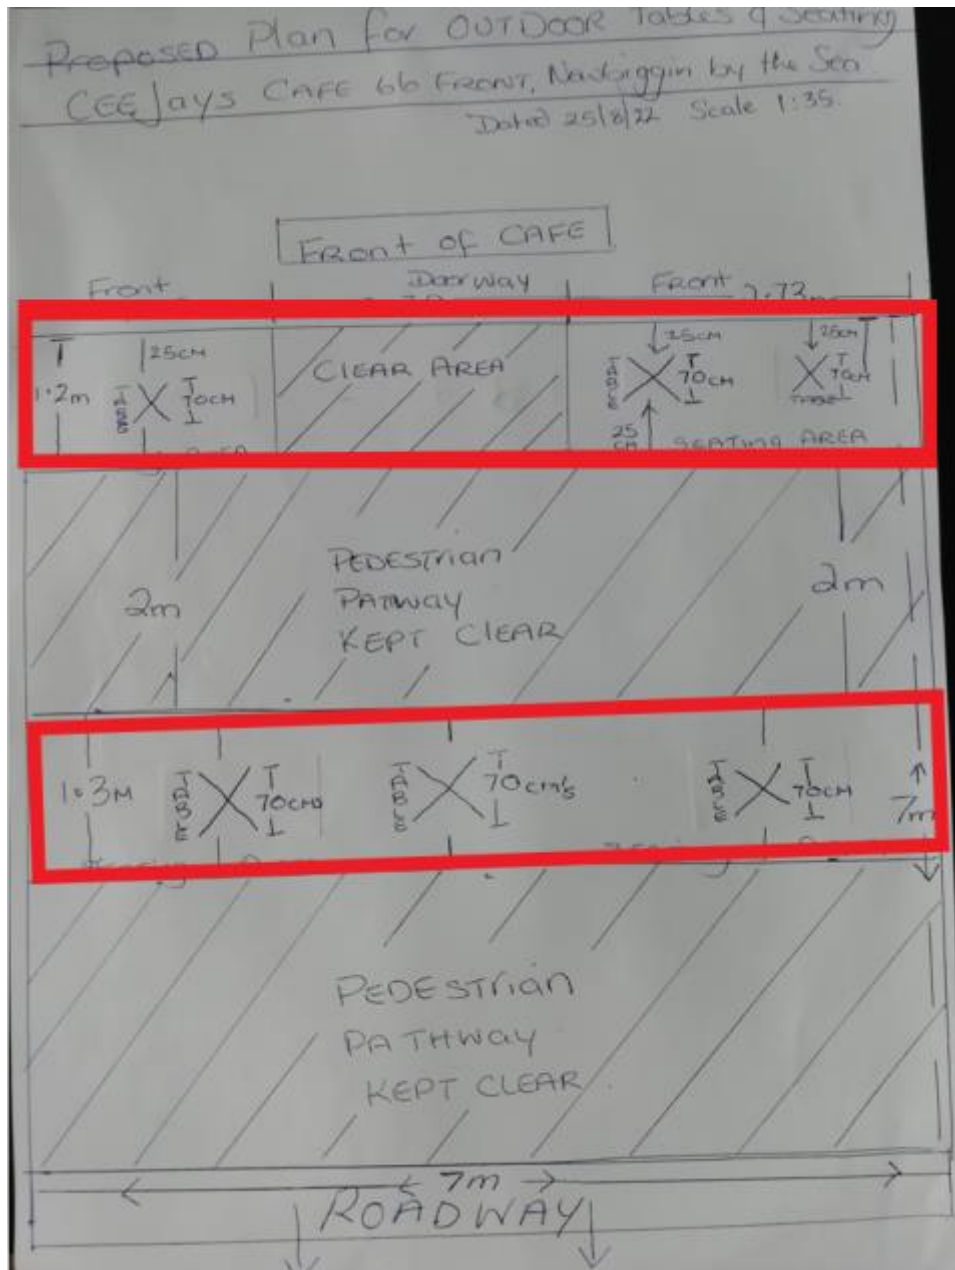 PROPOSED Plan for OUTDOOR Tables & Seating
CEEJays CAFE 66 FRONT, Newbiggin by the Sea
Dated 25/8/22 Scale 1:35.
Front of CAFE
Front Doorway Front 2.73m
1.2m 25CM TABLE 70CM
CLEAR AREA
25CM TABLE 70CM 25CM
25CM TABLE 70CM
SEATING AREA
2m
PEDESTrian
PATWAY
KEPT ClEAR
2m
1.3M TABLE 70CMS
TABLE 70cm's
TABLE 70CM
7m
PEDESTrian
PATHWAY
KEPT CLEAR
7m
ROADWAY